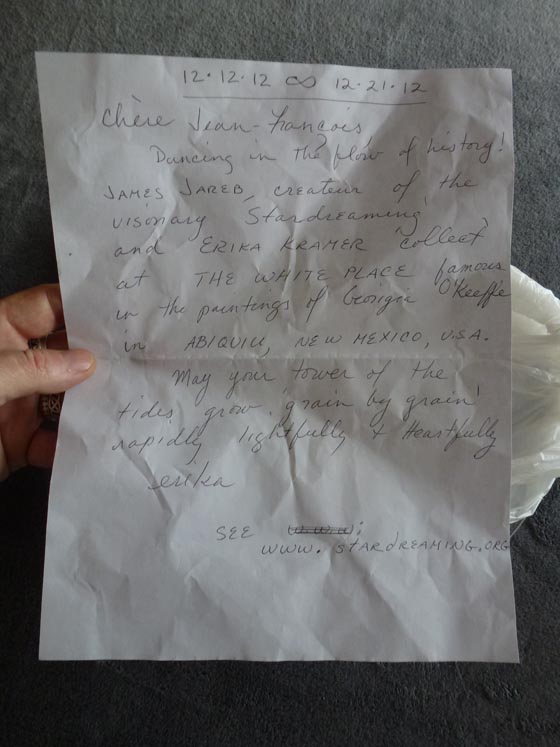 12·12·12 ∞ 12·21·12
Chère Jean-François,
Dancing in the flow of history!
JAMES JAREB, createur of the
visionary Stardreaming,
and ERIKA KRAMER collect
at THE WHITE PLACE famous
in the paintings of Georgia O'Keeffe
in ABIQUIU, NEW MEXICO, U.S.A.
May your tower of the
tides grow "grain by grain"
rapidly lightfully + Heartfully
erika
SEE www:
www.stardreaming.org